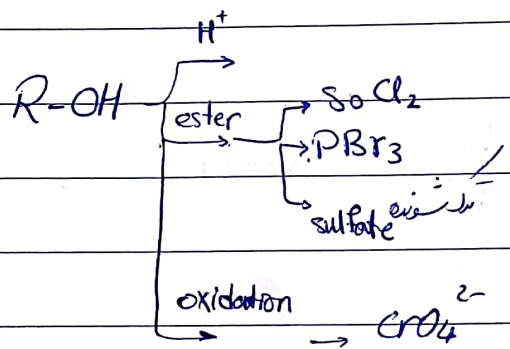 H⁺
R-OH
ester → SoCl₂
→ PBr₃
sulfate
oxidation → CrO₄²⁻